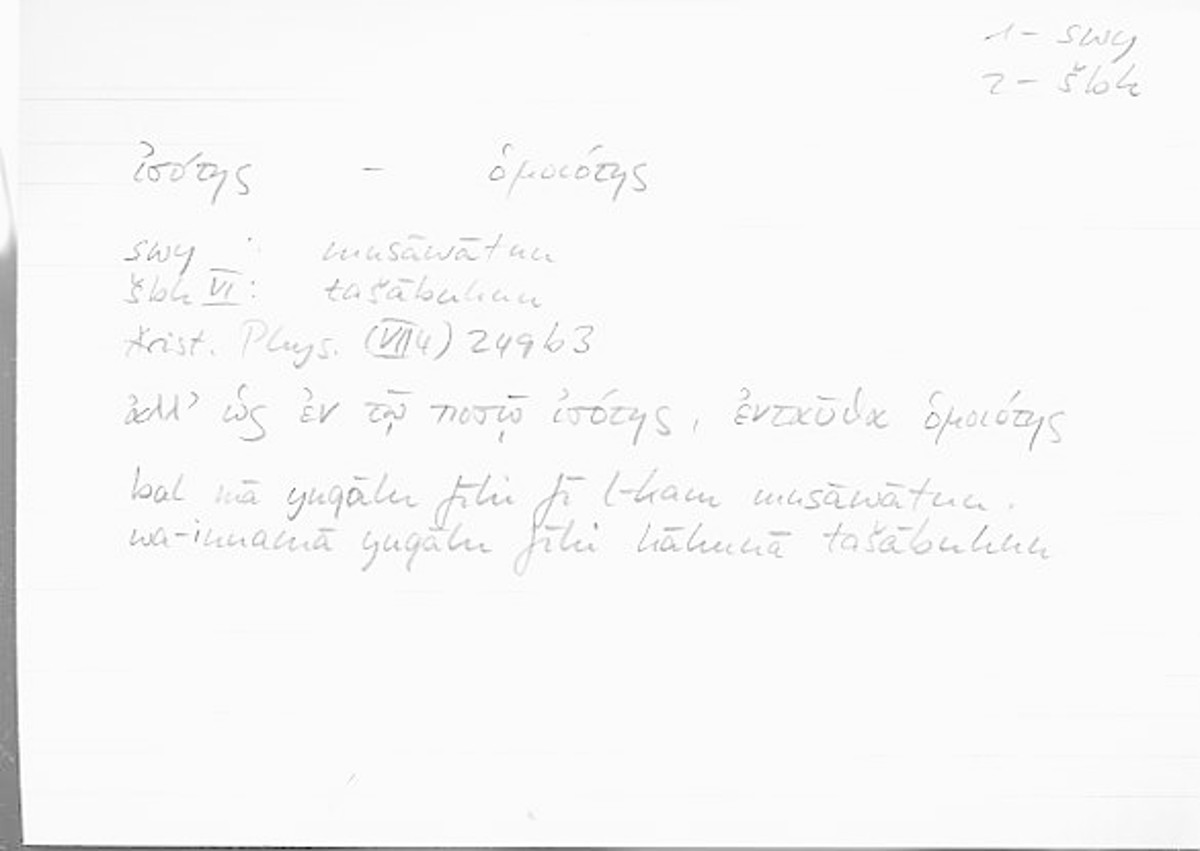 1 - swy
2 - šbh
ἰσότης - ὁμοιότης
swy : musāwātun
šbh VI : tašābuhun
Arist. Phys. (VII 4) 249b3
ἀλλ' ὡς ἐν τῷ ποσῷ ἰσότης, ἐνταῦθα ὁμοιότης
bal mā yuqālu fīhi fī l-kam musāwātun.
wa-innamā yuqālu fīhi hāhunā tašābuhun